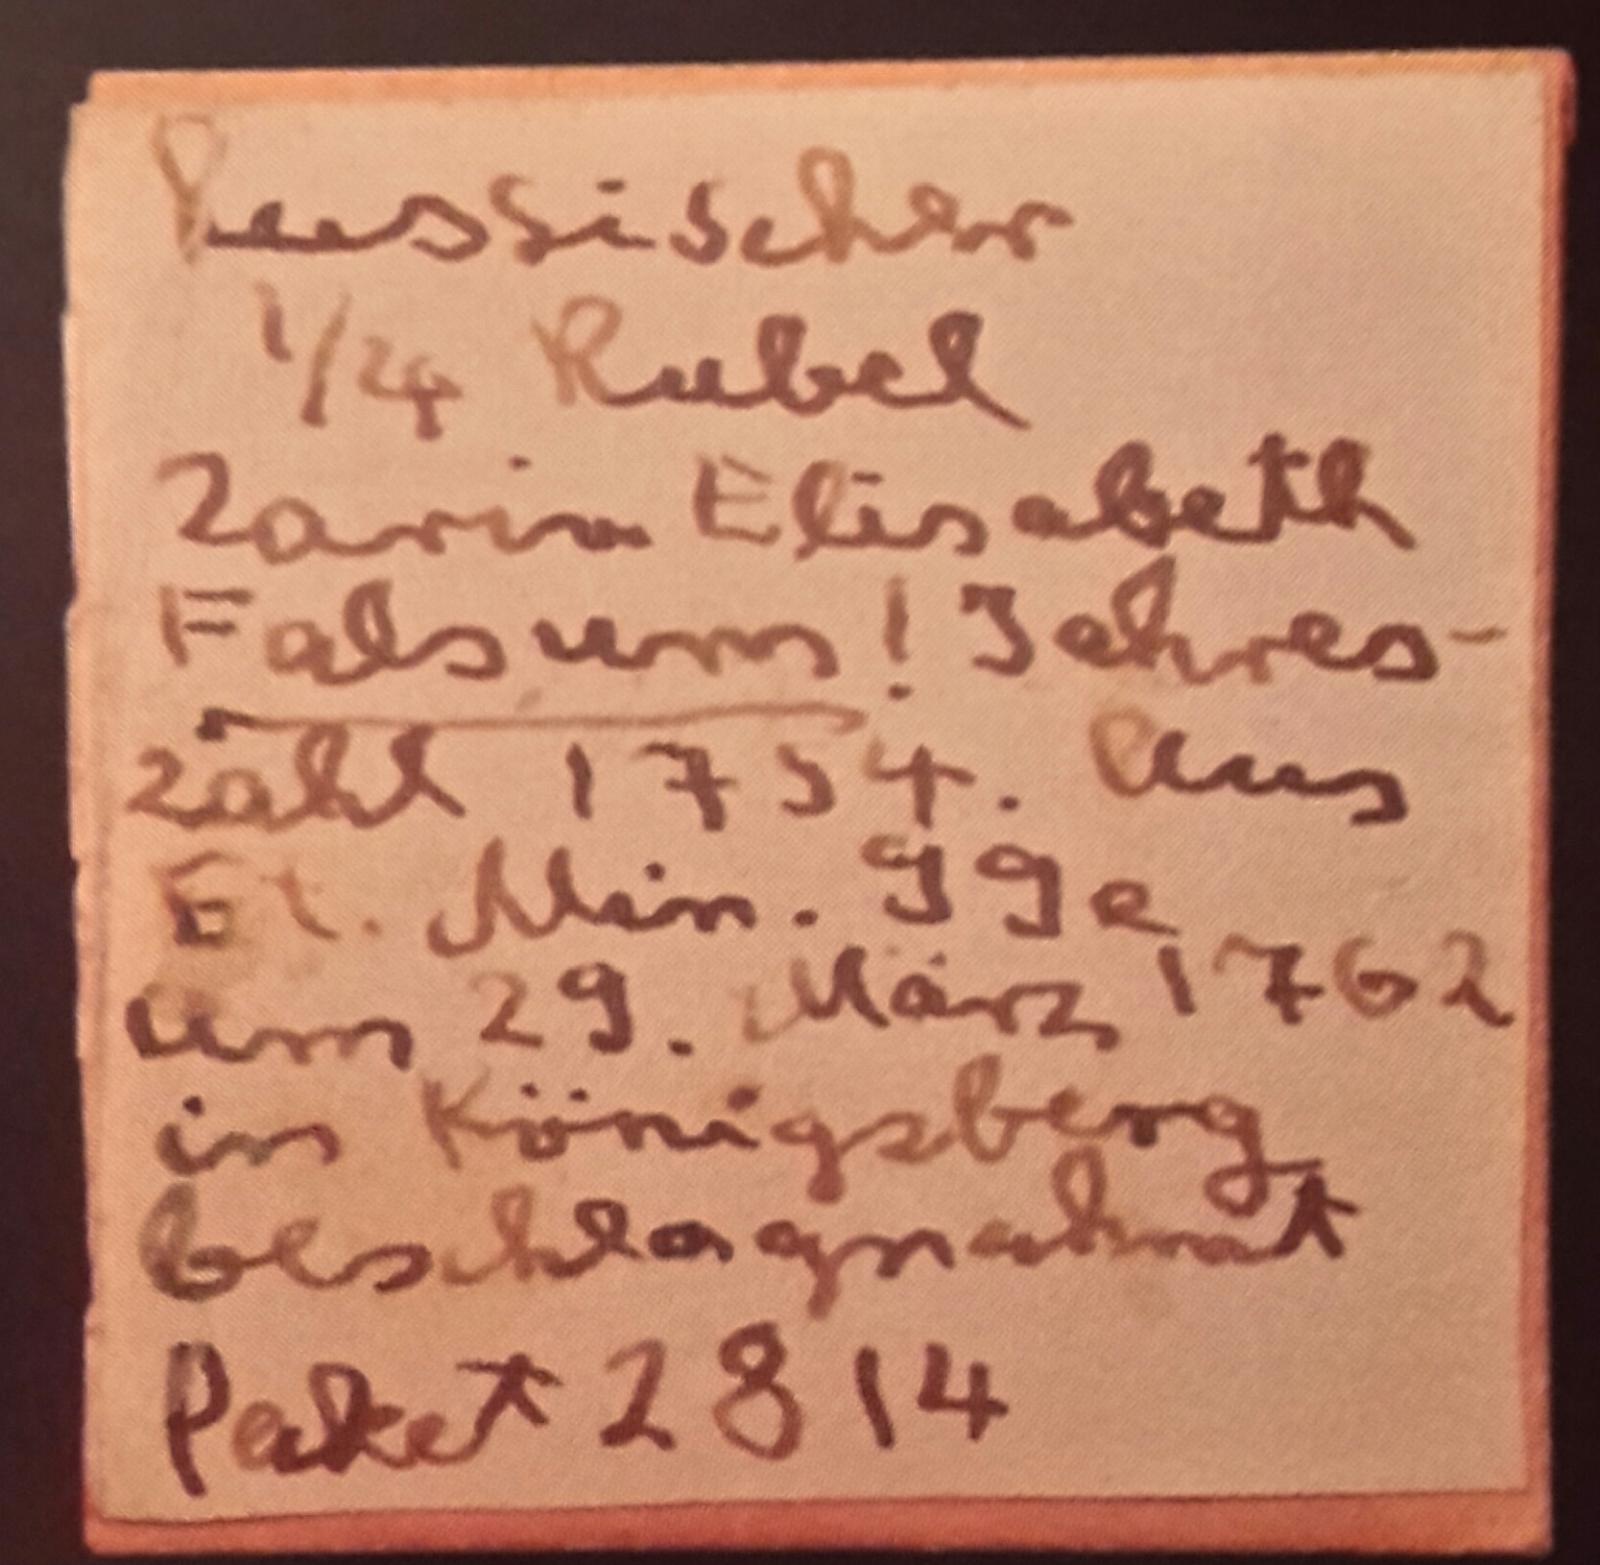 Russischer
1/24 Rubel
Zarin Elisabeth
Falsum! Jahres-
zahl 1754. Aus
Et. Min. 99e
um 29. März 1762
in Königsberg
beschlagnahmt
Paket 2814